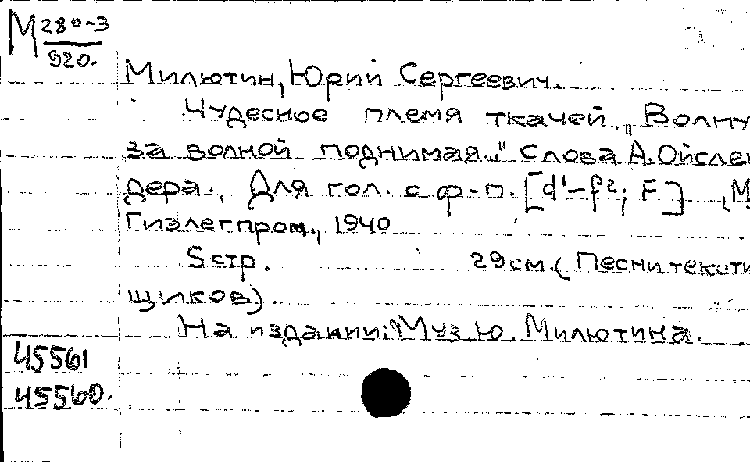 М 280-3
920.
Милютин, Юрий Сергеевич.
Чудесное племя ткачей. „Волну
за волной поднимая.." Слова А. Ойслен
дера. Для гол. с ф-п. [d¹-f²; F] , М
Гизлегпром, 1940
5 стр. 29 см. (Песни тексти
щиков).
На издании: Муз. Ю. Милютина.
45561
45560.